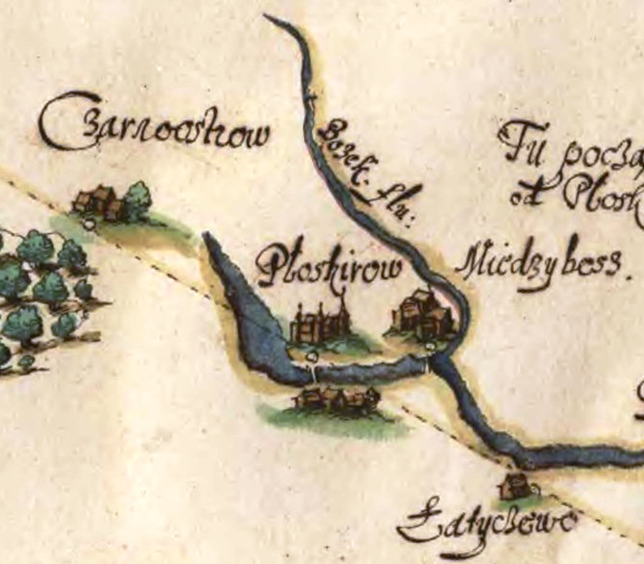 Czarnoostrow
Bozek. flu:
Tu począ
od Ploski
Ploskirow
Miedzyboss.
Łatyczewo